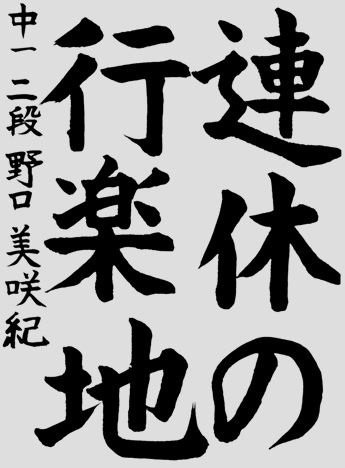 連休の
行楽地
中一 二段 野口 美咲紀